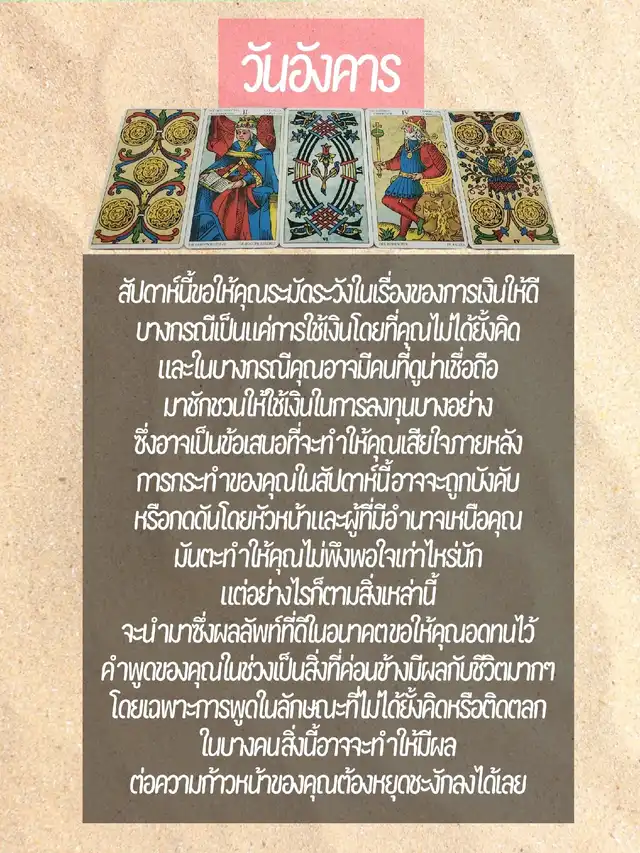 วันอังคาร
II
IV
VI
VI
สัปดาห์นี้ขอให้คุณระมัดระวังในเรื่องของการเงินให้ดี
บางกรณีเป็นแค่การใช้เงินโดยที่คุณไม่ได้ยั้งคิด
และในบางกรณีคุณอาจมีคนที่ดูน่าเชื่อถือ
มาชักชวนให้ใช้เงินในการลงทุนบางอย่าง
ซึ่งอาจเป็นข้อเสนอที่จะทำให้คุณเสียใจภายหลัง
การกระทำของคุณในสัปดาห์นี้อาจจะถูกบังคับ
หรือกดดันโดยหัวหน้าและผู้ที่มีอำนาจเหนือคุณ
มันตะทำให้คุณไม่พึงพอใจเท่าไหร่นัก
แต่อย่างไรก็ตามสิ่งเหล่านี้
จะนำมาซึ่งผลลัพท์ที่ดีในอนาคตขอให้คุณอดทนไว้
คำพูดของคุณในช่วงเป็นสิ่งที่ค่อนข้างมีผลกับชีวิตมากๆ
โดยเฉพาะการพูดในลักษณะที่ไม่ได้ยั้งคิดหรือติดตลก
ในบางคนสิ่งนี้อาจจะทำให้มีผล
ต่อความก้าวหน้าของคุณต้องหยุดชะงักลงได้เลย